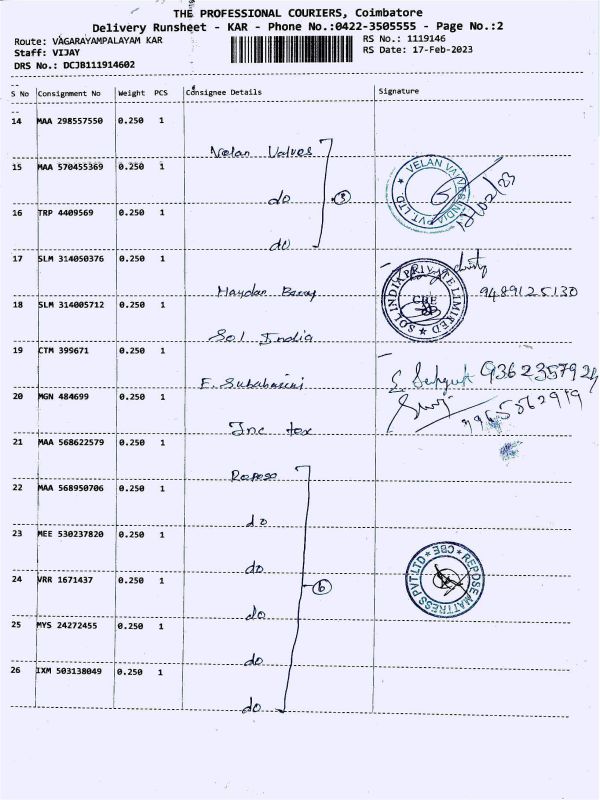 THE PROFESSIONAL COURIERS, Coimbatore
Delivery Runsheet - KAR - Phone No.:0422-3505555 - Page No.:2
Route: VAGARAYAMPALAYAM KAR
RS No.: 1119146
Staff: VIJAY
RS Date: 17-Feb-2023
DRS No.: DCJB111914602
S No Consignment No Weight PCS Consignee Details Signature
14 MAA 298557550 0.250 1
Velan Valves
15 MAA 570455369 0.250 1
do
3
VELAN VALVES INDIA PVT. LTD.
16 TRP 4409569 0.250 1
do
17 SLM 314050376 0.250 1
9489125130
18 SLM 314005712 0.250 1
Sol India
SOL INDIA PRIVATE LIMITED
CBE
19 CTM 399671 0.250 1
9362357924
20 MGN 484699 0.250 1
Inc tex
21 MAA 568622579 0.250 1
Repose
22 MAA 568950706 0.250 1
do
23 MEE 530237820 0.250 1
do
24 VRR 1671437 0.250 1
6
do
REPOSE MATTRESS PVT LTD CBE
25 MYS 24272455 0.250 1
do
26 IXM 503138049 0.250 1
do